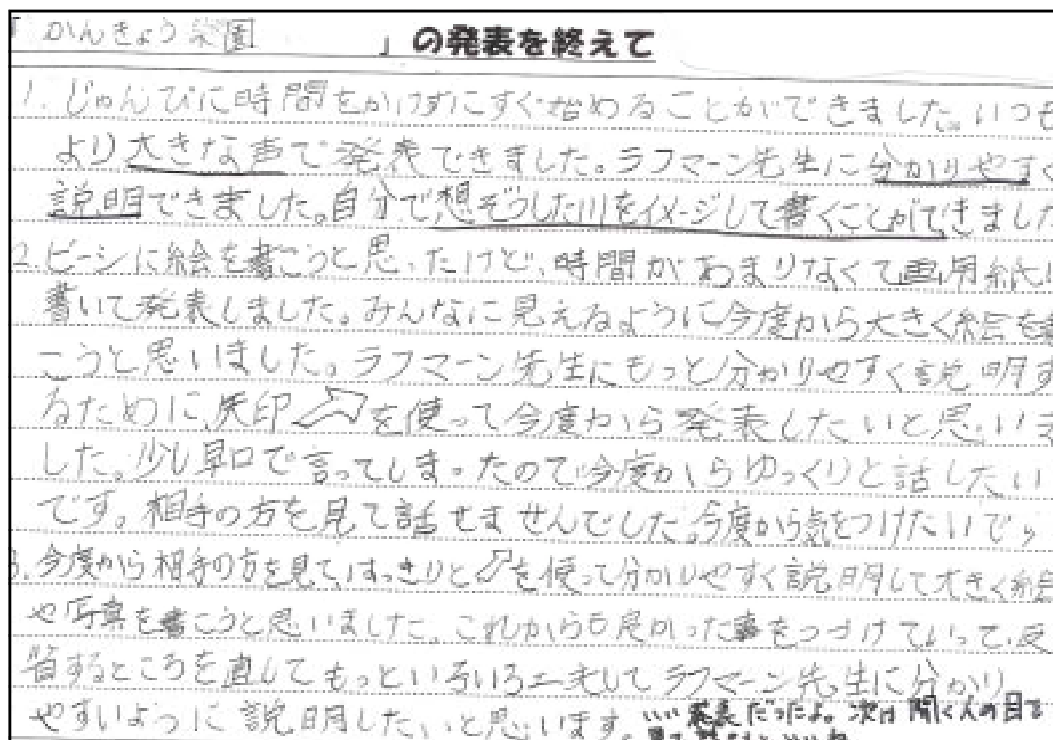 「かんきょう楽園」の発表を終えて
1. じゅんびに時間をかけずにすぐ始めることができました。いつも
より大きな声で発表できました。ラフマーン先生に分かりやすく
説明できました。自分で想ぞうした川をイメージして書くことができました
2. ビーシに絵を書こうと思ったけど、時間があまりなくて画用紙に
書いて発表しました。みんなに見えるように今度から大きく絵を書
こうと思いました。ラフマーン先生にもっと分かりやすく説明す
るために、矢印を使って今度から発表したいと思いま
した。少し早口で言ってしまったので今度からゆっくりと話したい
です。相手の方を見て話せませんでした。今度から気をつけたいです
3. 今度から相手の方を見て、はっきりと を使って分かりやすく説明して大きく絵
や写真を書こうと思いました。これからも良かった事をつづけていって、反
省するところを直してもっといろいろ工夫してラフマーン先生に分かり
やすいように説明したいと思います。いい発表だったよ。次は聞く人の目を
見て いいね